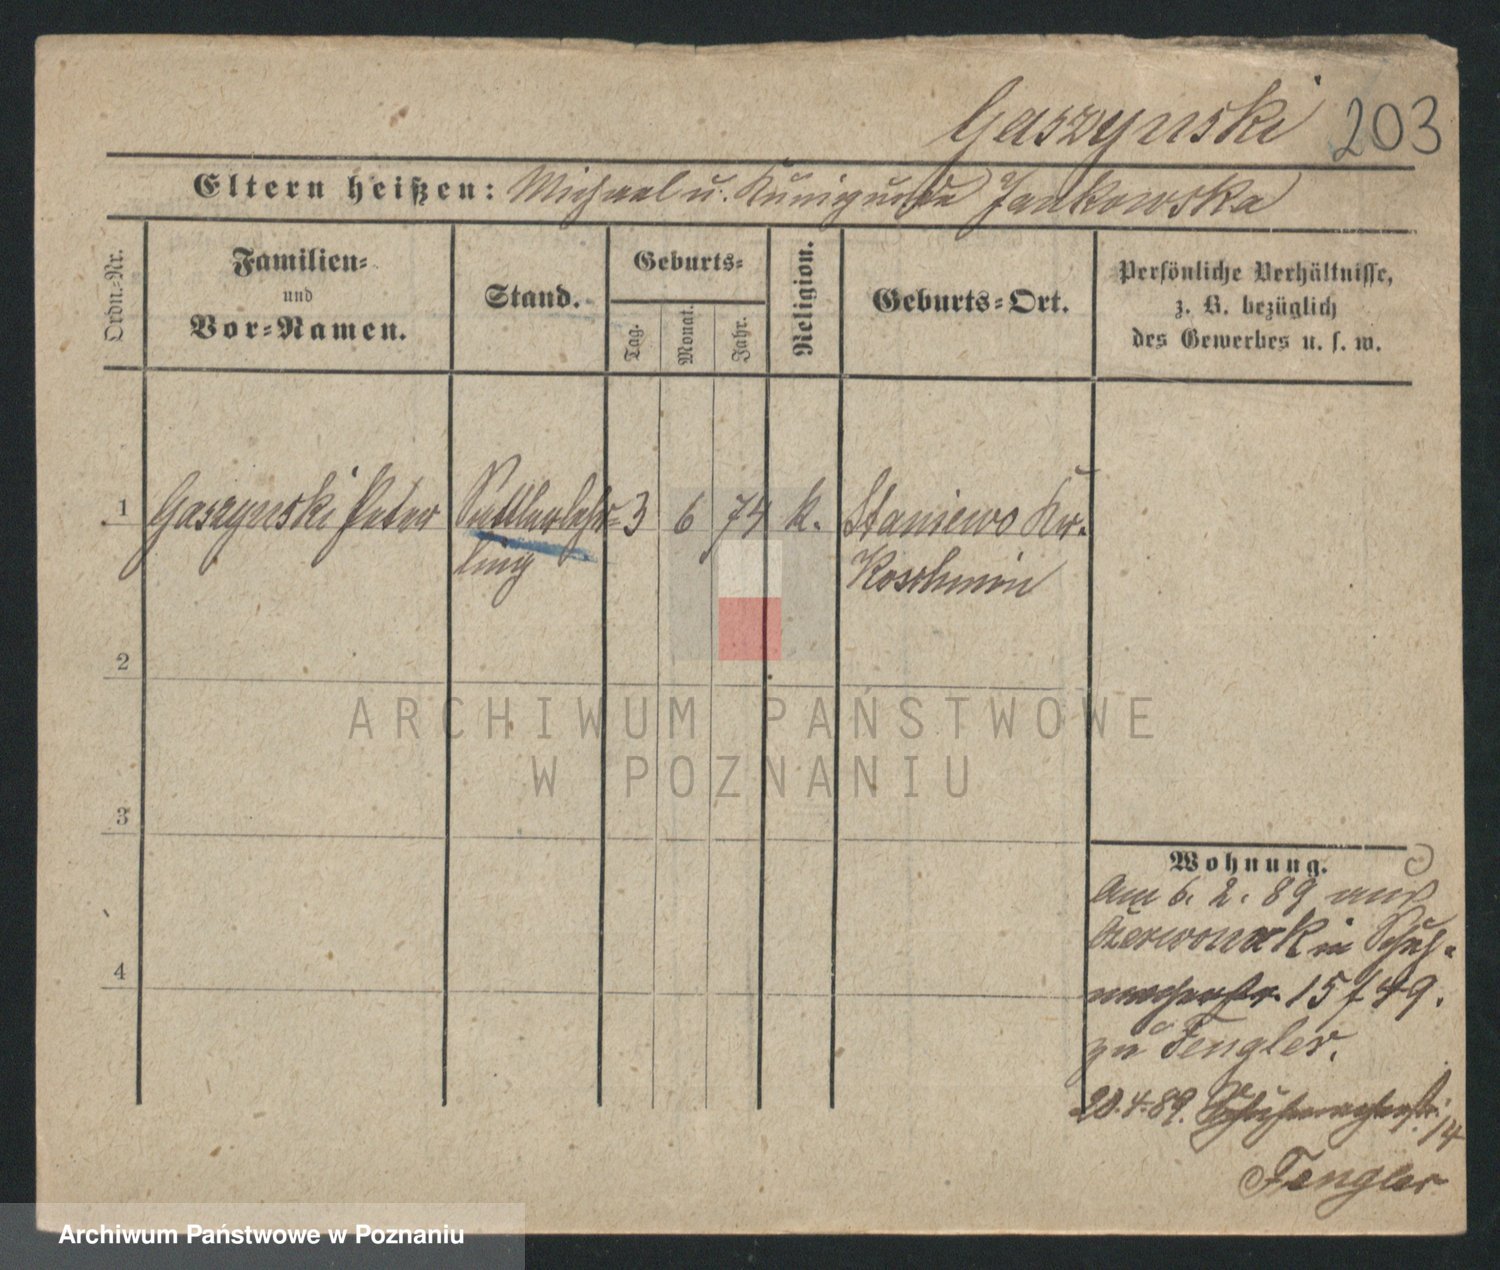 Gaszynski 203
Eltern heißen: Michael u. Kunigunde Jankowska
Ordn.-Nr.
Familien-
und
Vor-Namen.
Stand.
Geburts-
Tag.
Monat.
Jahr.
Religion.
Geburts-Ort.
Persönliche Verhältnisse,
z. B. bezüglich
des Gewerbes u. s. w.
1 Gaszynski Peter Sattlerlehr- 3 6 74 k. Staniewo Kr.
ling Koschmin
2
3
4
Wohnung.
Am 6. 2. 89 aus
Czerwonak in Schuh-
macherstr. 15
zu Fengler.
20.4.89. Schuhmacherstr. 14
Fengler
ARCHIWUM PAŃSTWOWE
W POZNANIU
Archiwum Państwowe w Poznaniu